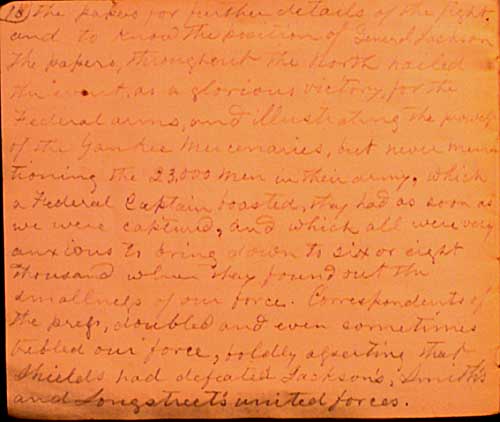 (18) the papers for further details of the fight.
and to know the position of General Jackson
The papers, throughout the North hailed
the event, as a glorious victory, for the
Federal arms, and illustrating the prowess
of the Yankee Mercenaries, but never men-
tioning the 23,000 men in their army, which
a Federal Captain boasted, they had as soon as
we were captured, and which all were very
anxious to bring down to six or eight
thousand when they found out the
smallness of our force. Correspondents of
the press, doubled and even sometimes
trebled our force, boldly asserting that
Shields had defeated Jackson's, Smith's
and Longstreet's united forces.